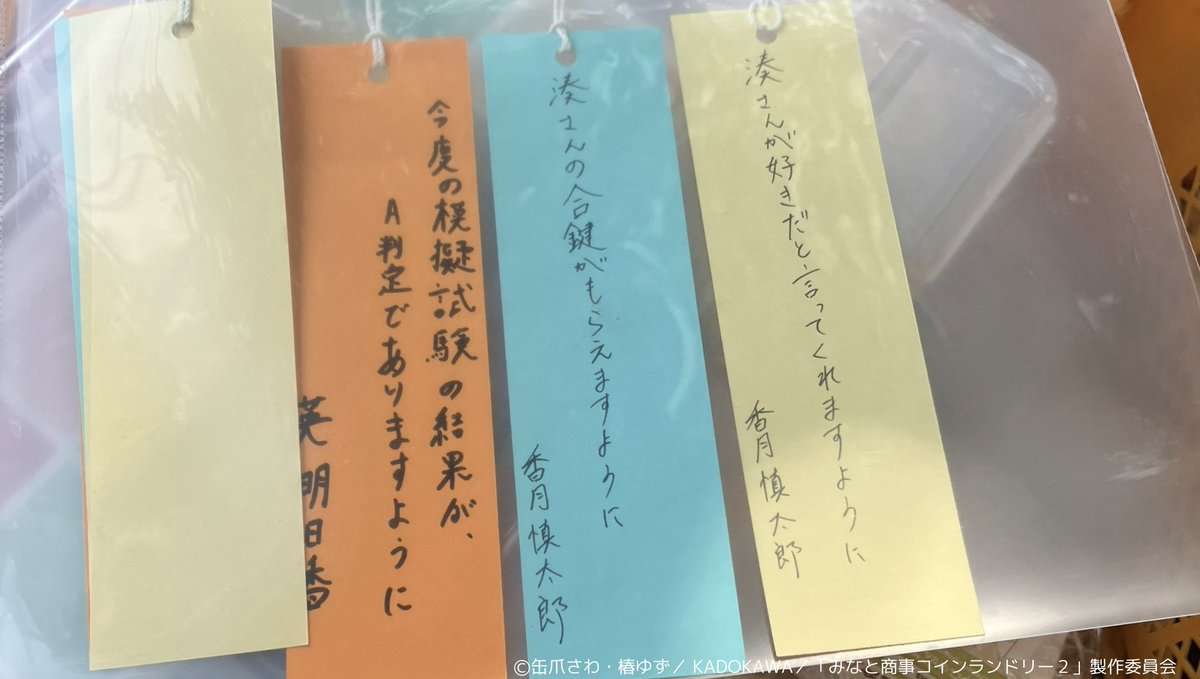 湊さんが好きだと言ってくれますように
香月慎太郎
湊さんの合鍵がもらえますように
香月慎太郎
今度の模擬試験の結果が、
A判定でありますように
英明日香
©缶爪さわ・椿ゆず／KADOKAWA／「みなと商事コインランドリー２」製作委員会